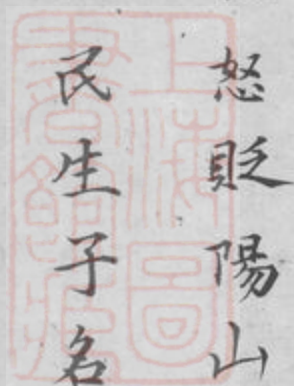 怒貶陽山
民生子名
上海圖
書館藏